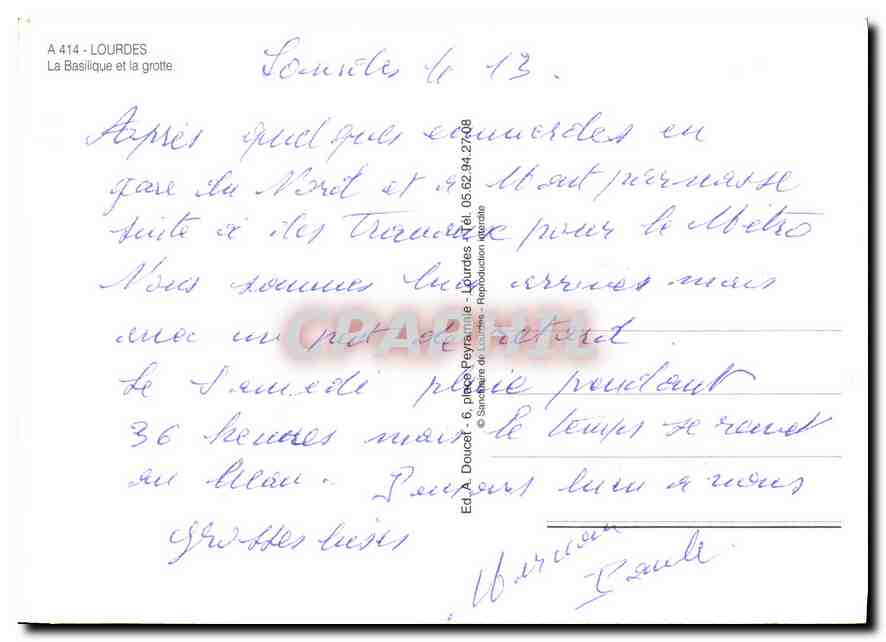 A 414 - LOURDES
La Basilique et la grotte.
Lourdes le 13.
Après quelques emmerdes en
gare du Nord et a Montparnasse
suite à des Travaux pour le Métro
Nous sommes bien arrivés mais
avec un peu de retard.
Le Samedi pluie pendant
36 heures mais le temps se remet
au beau. Pensons bien a vous
grosses bises
Maman
Paule.
Ed. A. Doucet - 6, place Peyramale - Lourdes - Tél. 05.62.94.27.08
© Sanctuaire de Lourdes - Reproduction interdite
CPAPHIL